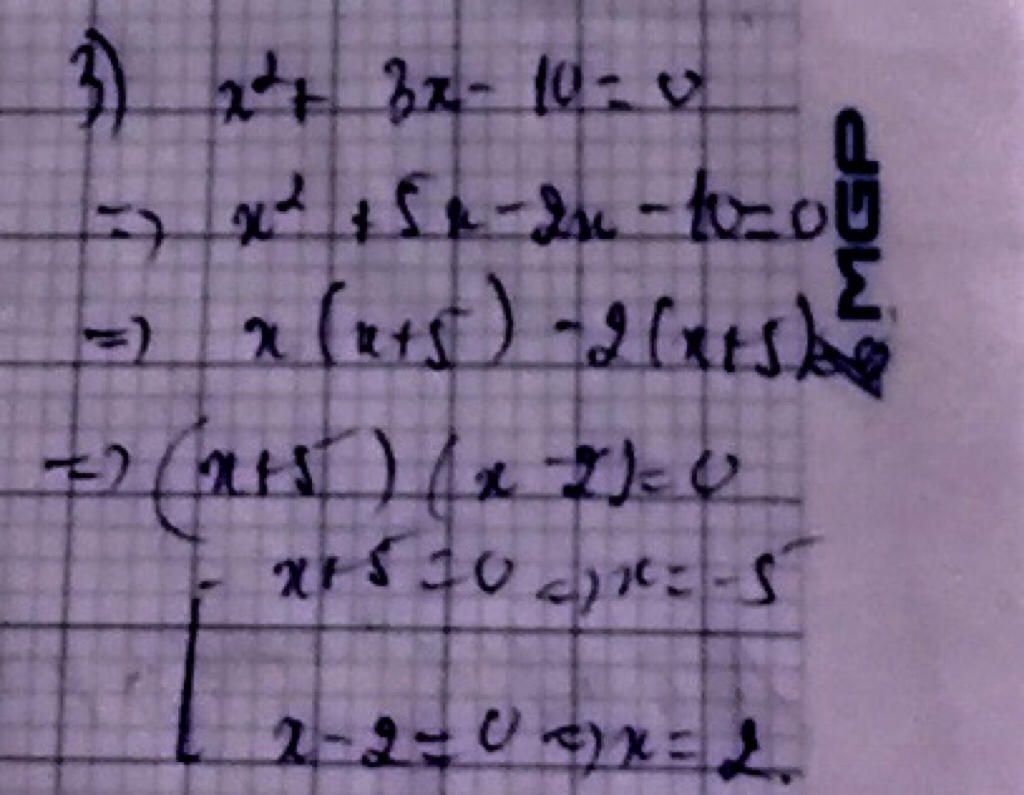 3) x² + 3x - 10 = 0
=> x² + 5x - 2x - 10 = 0
=> x (x+5) - 2 (x+5)
=> (x+5) (x - 2) = 0
x+5 = 0 => x = -5
x - 2 = 0 => x = 2.
MGP